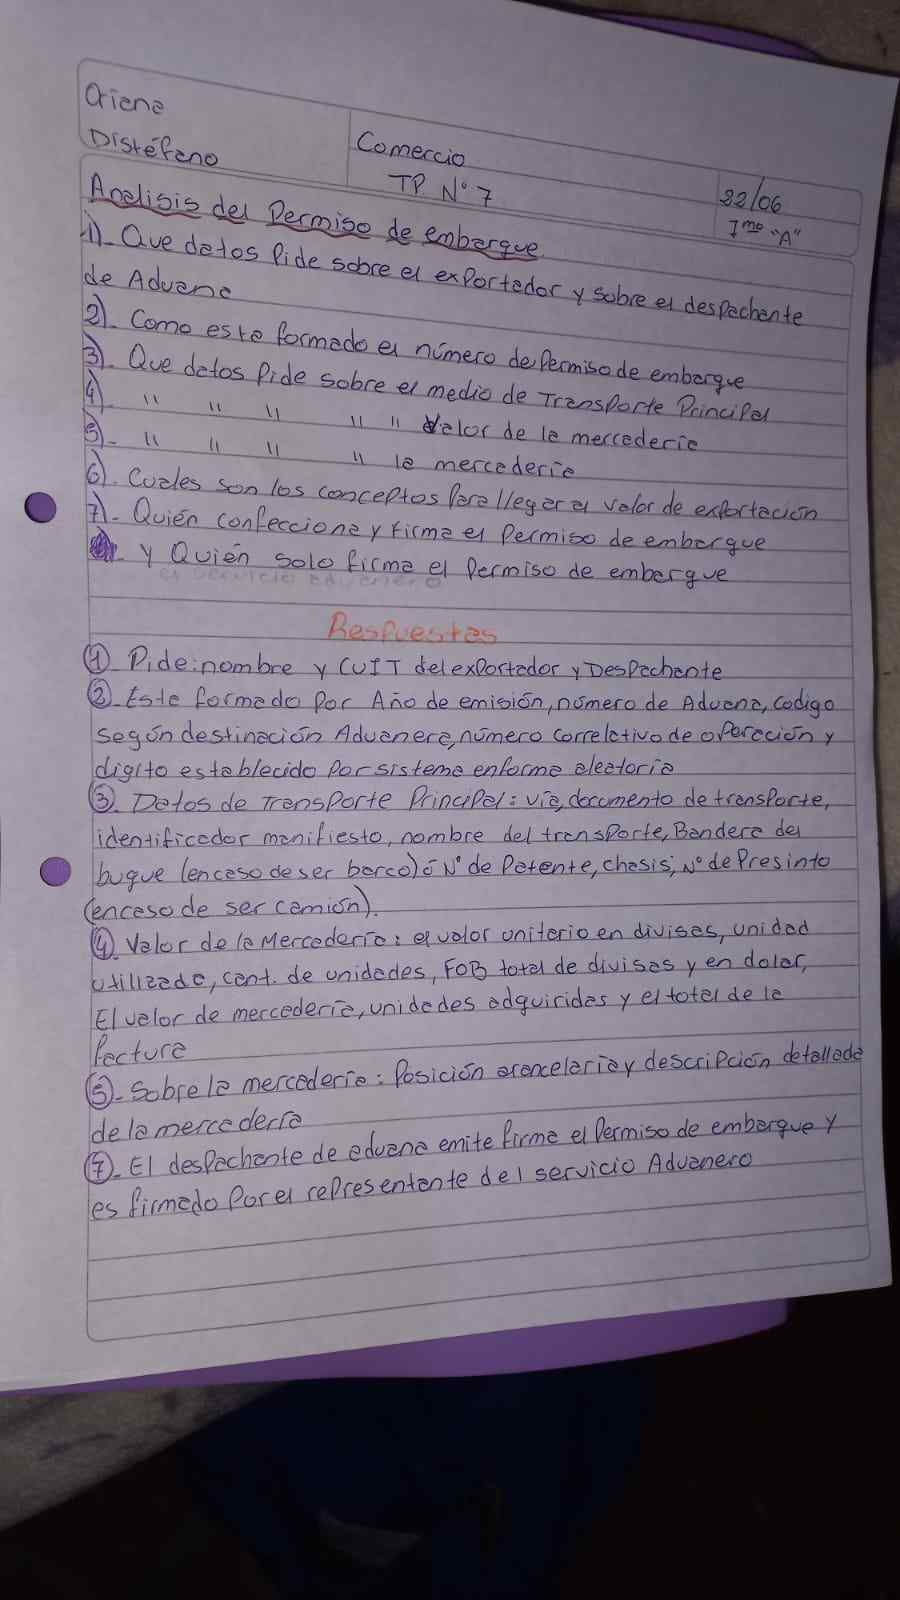 Oriana
Distéfano
Comercio
TP N° 7
22/06
7mo "A"
Analisis del Permiso de embarque
1)- Que datos Pide sobre el exportador y sobre el despachante
de Aduana
2)- Como esta formado el número de Permiso de embarque
3)- Que datos Pide sobre el medio de Transporte Principal
4)- " " " " " Valor de la mercaderia
5)- " " " " la mercaderia
6)- Cuales son los conceptos Para llegar al valor de exportación
7)- Quién confecciona y firma el Permiso de embarque
y Quién solo firma el Permiso de embarque
el servicio aduanero
Respuestas
1)- Pide: nombre y CUIT del exportador y Despachante
2)- Esta formado Por Año de emisión, número de Aduana, codigo
según destinación Aduanera, número correlativo de operación y
digito establecido Por sistema enforma aleatoria
3)- Datos de Transporte Principal: via, documento de transporte,
identificador manifiesto, nombre del transporte, Bandera del
buque (encaso de ser barco) ó N° de Patente, chasis, N° de Presinto
(encaso de ser camión).
4)- Valor de la Mercaderia: el valor unitario en divisas, unidad
utilizada, cant. de unidades, FOB total de divisas y en dolar,
El valor de mercaderia, unidades adquiridas y el total de la
factura
5)- Sobre la mercaderia: Posición arancelaria y descripción detallada
de la mercaderia
7)- El despachante de aduana emite firma el Permiso de embarque y
es firmado Por el representante del servicio Aduanero